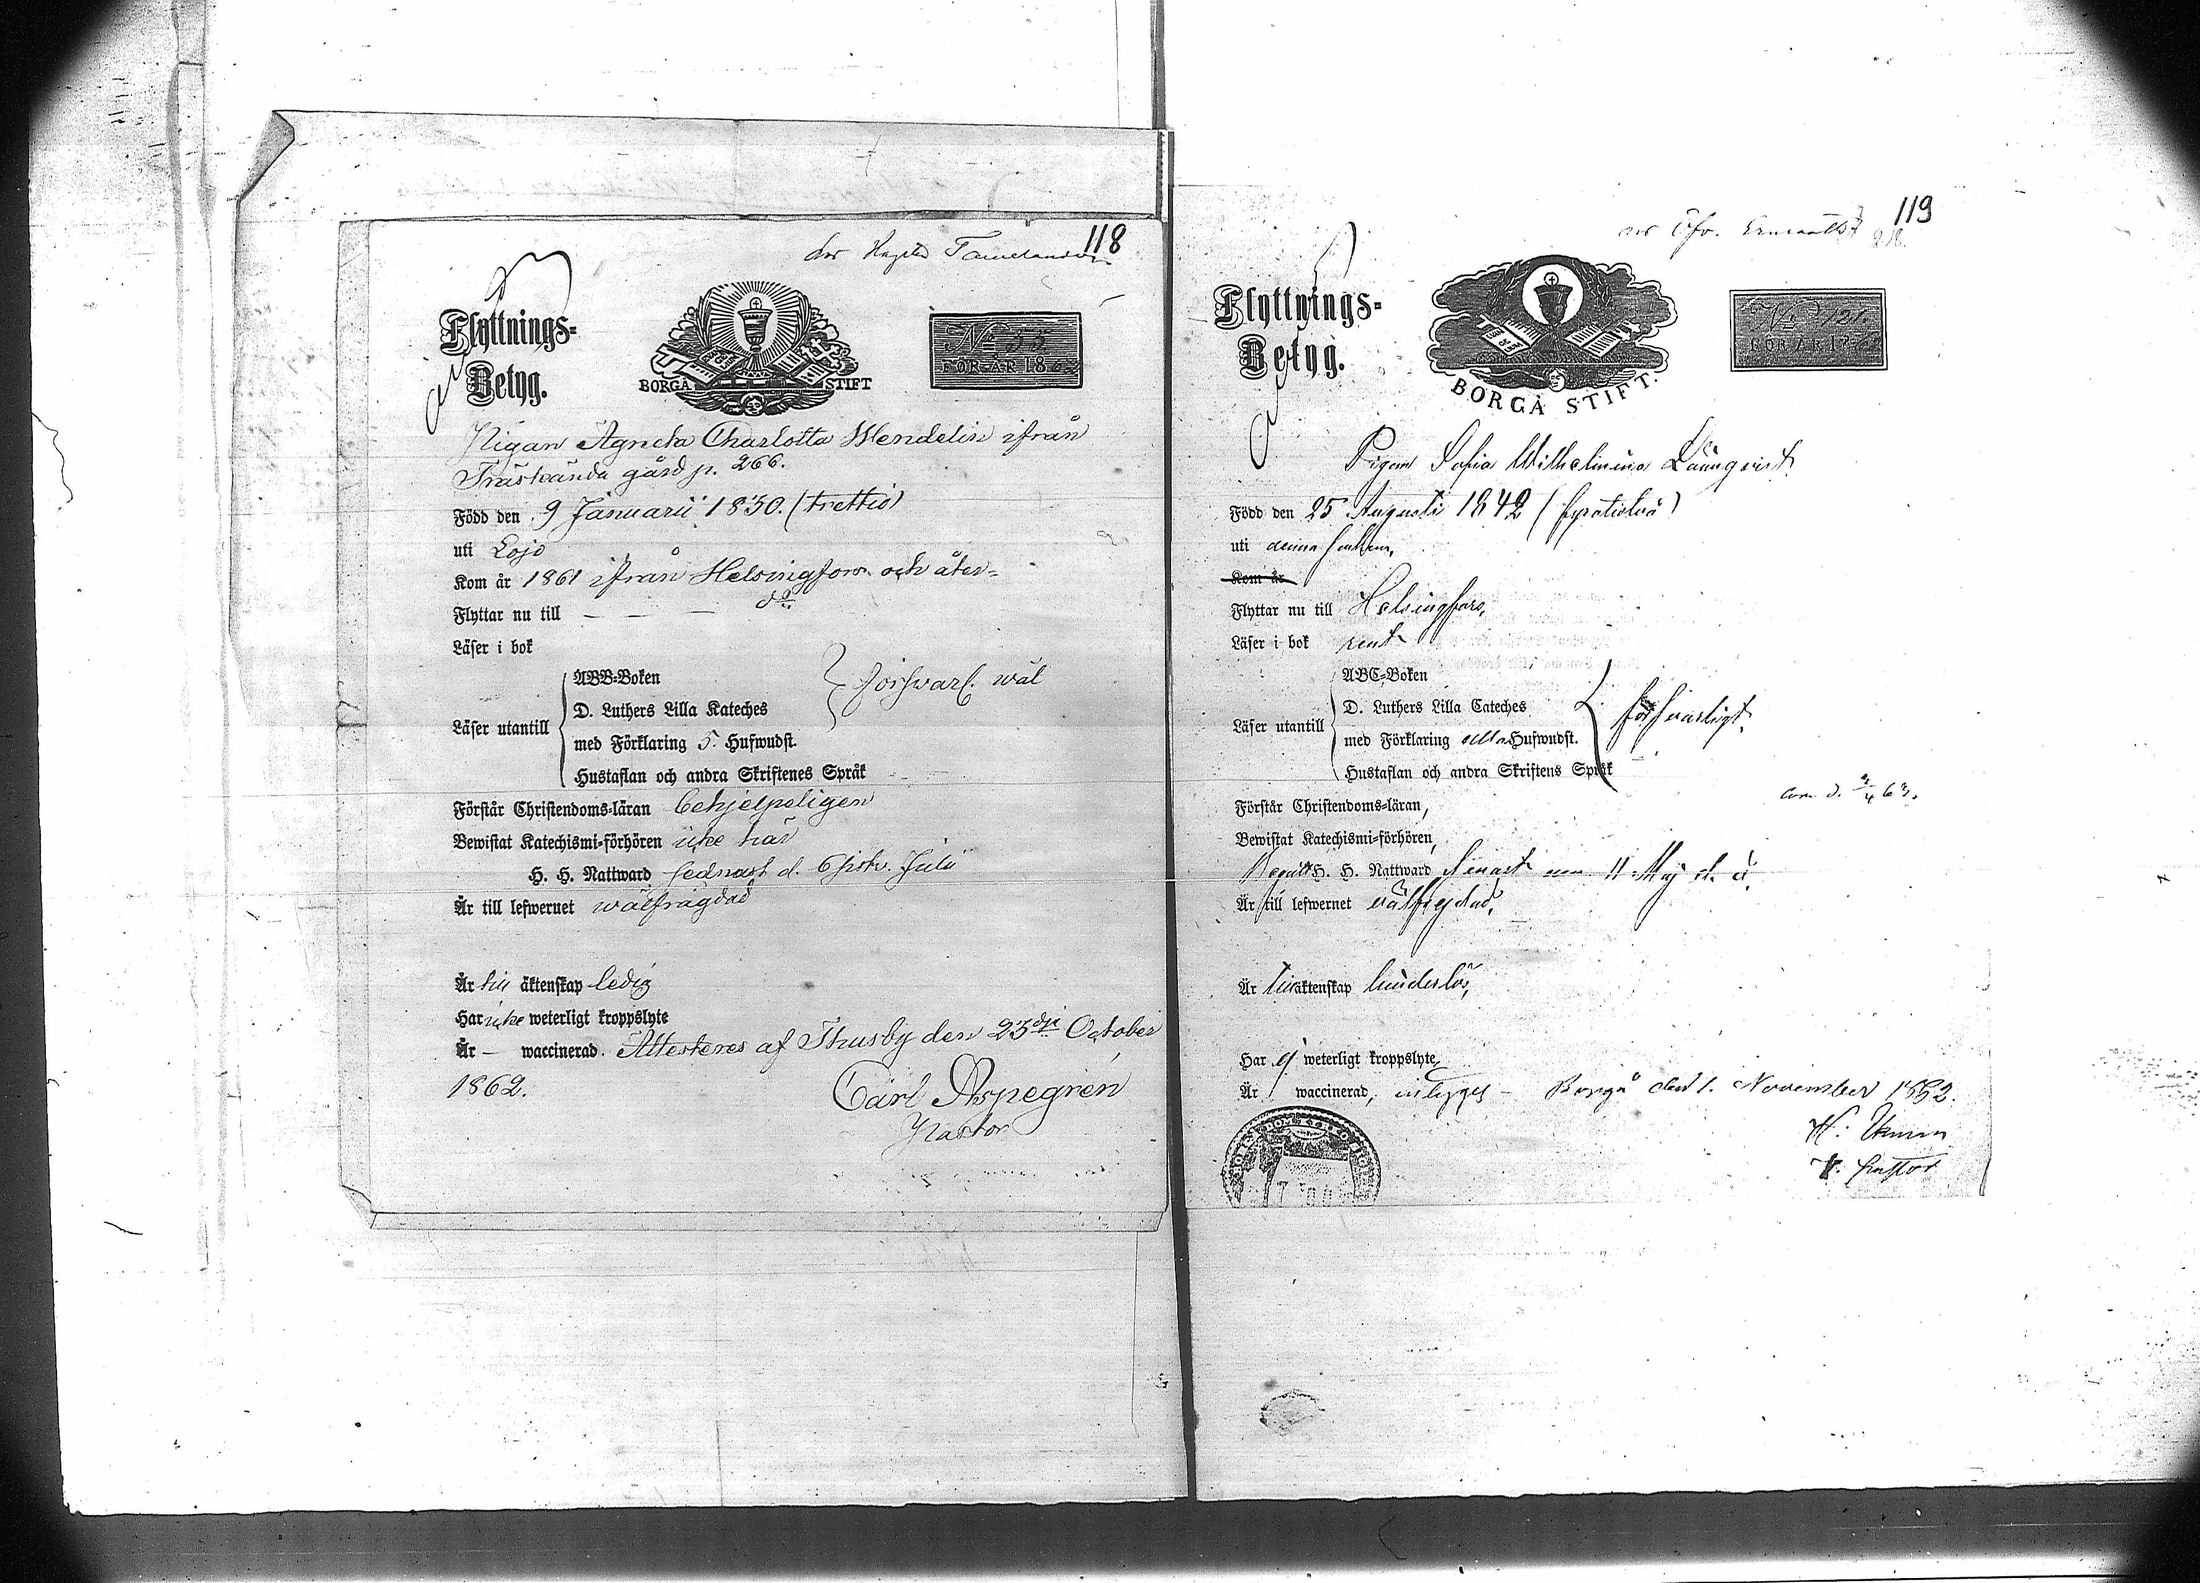 118
hos Kapten
Flyttnings-
Betyg.
BORGÅ STIFT
No 55
FÖR ÅR 1862
Pigan Agneta Charlotta Wendelin ifrån
Träskända gård p. 266.
Född den 9 Januarii 1830. (trettio)
uti Lojo
Kom år 1861 ifrån Helsingfors och åter-
Flyttar nu till — — — do
Läser i bok
ABB-Boken
D. Luthers Lilla Kateches
Läser utantill
med Förklaring 5. Hufwudst.
försvarl. wäl
Hustaflan och andra Skriftenes Språk
Förstår Christendoms-läran behjelpeligen
Bewistat Katechismi-förhören icke här
H. H. Nattward sednast d. 6 Juli
Är till lefwernet wälfrägdad
Är till äktenskap ledig
Har icke weterligt kroppslyte
Är — waccinerad. Attesteres af Thusby den 23dje October
1862.
Carl Aspegren
Pastor
119
Flyttnings-
Betyg.
BORGÅ STIFT.
No 121.
FÖR ÅR 1862
Pigan Sofia Wilhelmina Lönnqvist
Född den 25 Augusti 1842 (fyratiotvå)
uti denna socken,
Kom år
Flyttar nu till Helsingfors,
Läser i bok rent
ABC-Boken
D. Luthers Lilla Cateches
Läser utantill
med Förklaring alla Hufwudst.
försvarligt.
Hustaflan och andra Skriftens Språk
Förstår Christendoms-läran,
Bewistat Katechismi-förhören,
Begått H. H. Nattward senast den 11 Maj d. å.
Är till lefwernet välfrejdad,
Är till äktenskap hinderlös,
Har ej weterligt kroppslyte,
Är waccinerad, Borgå den 1. November 1862.
V. pastor